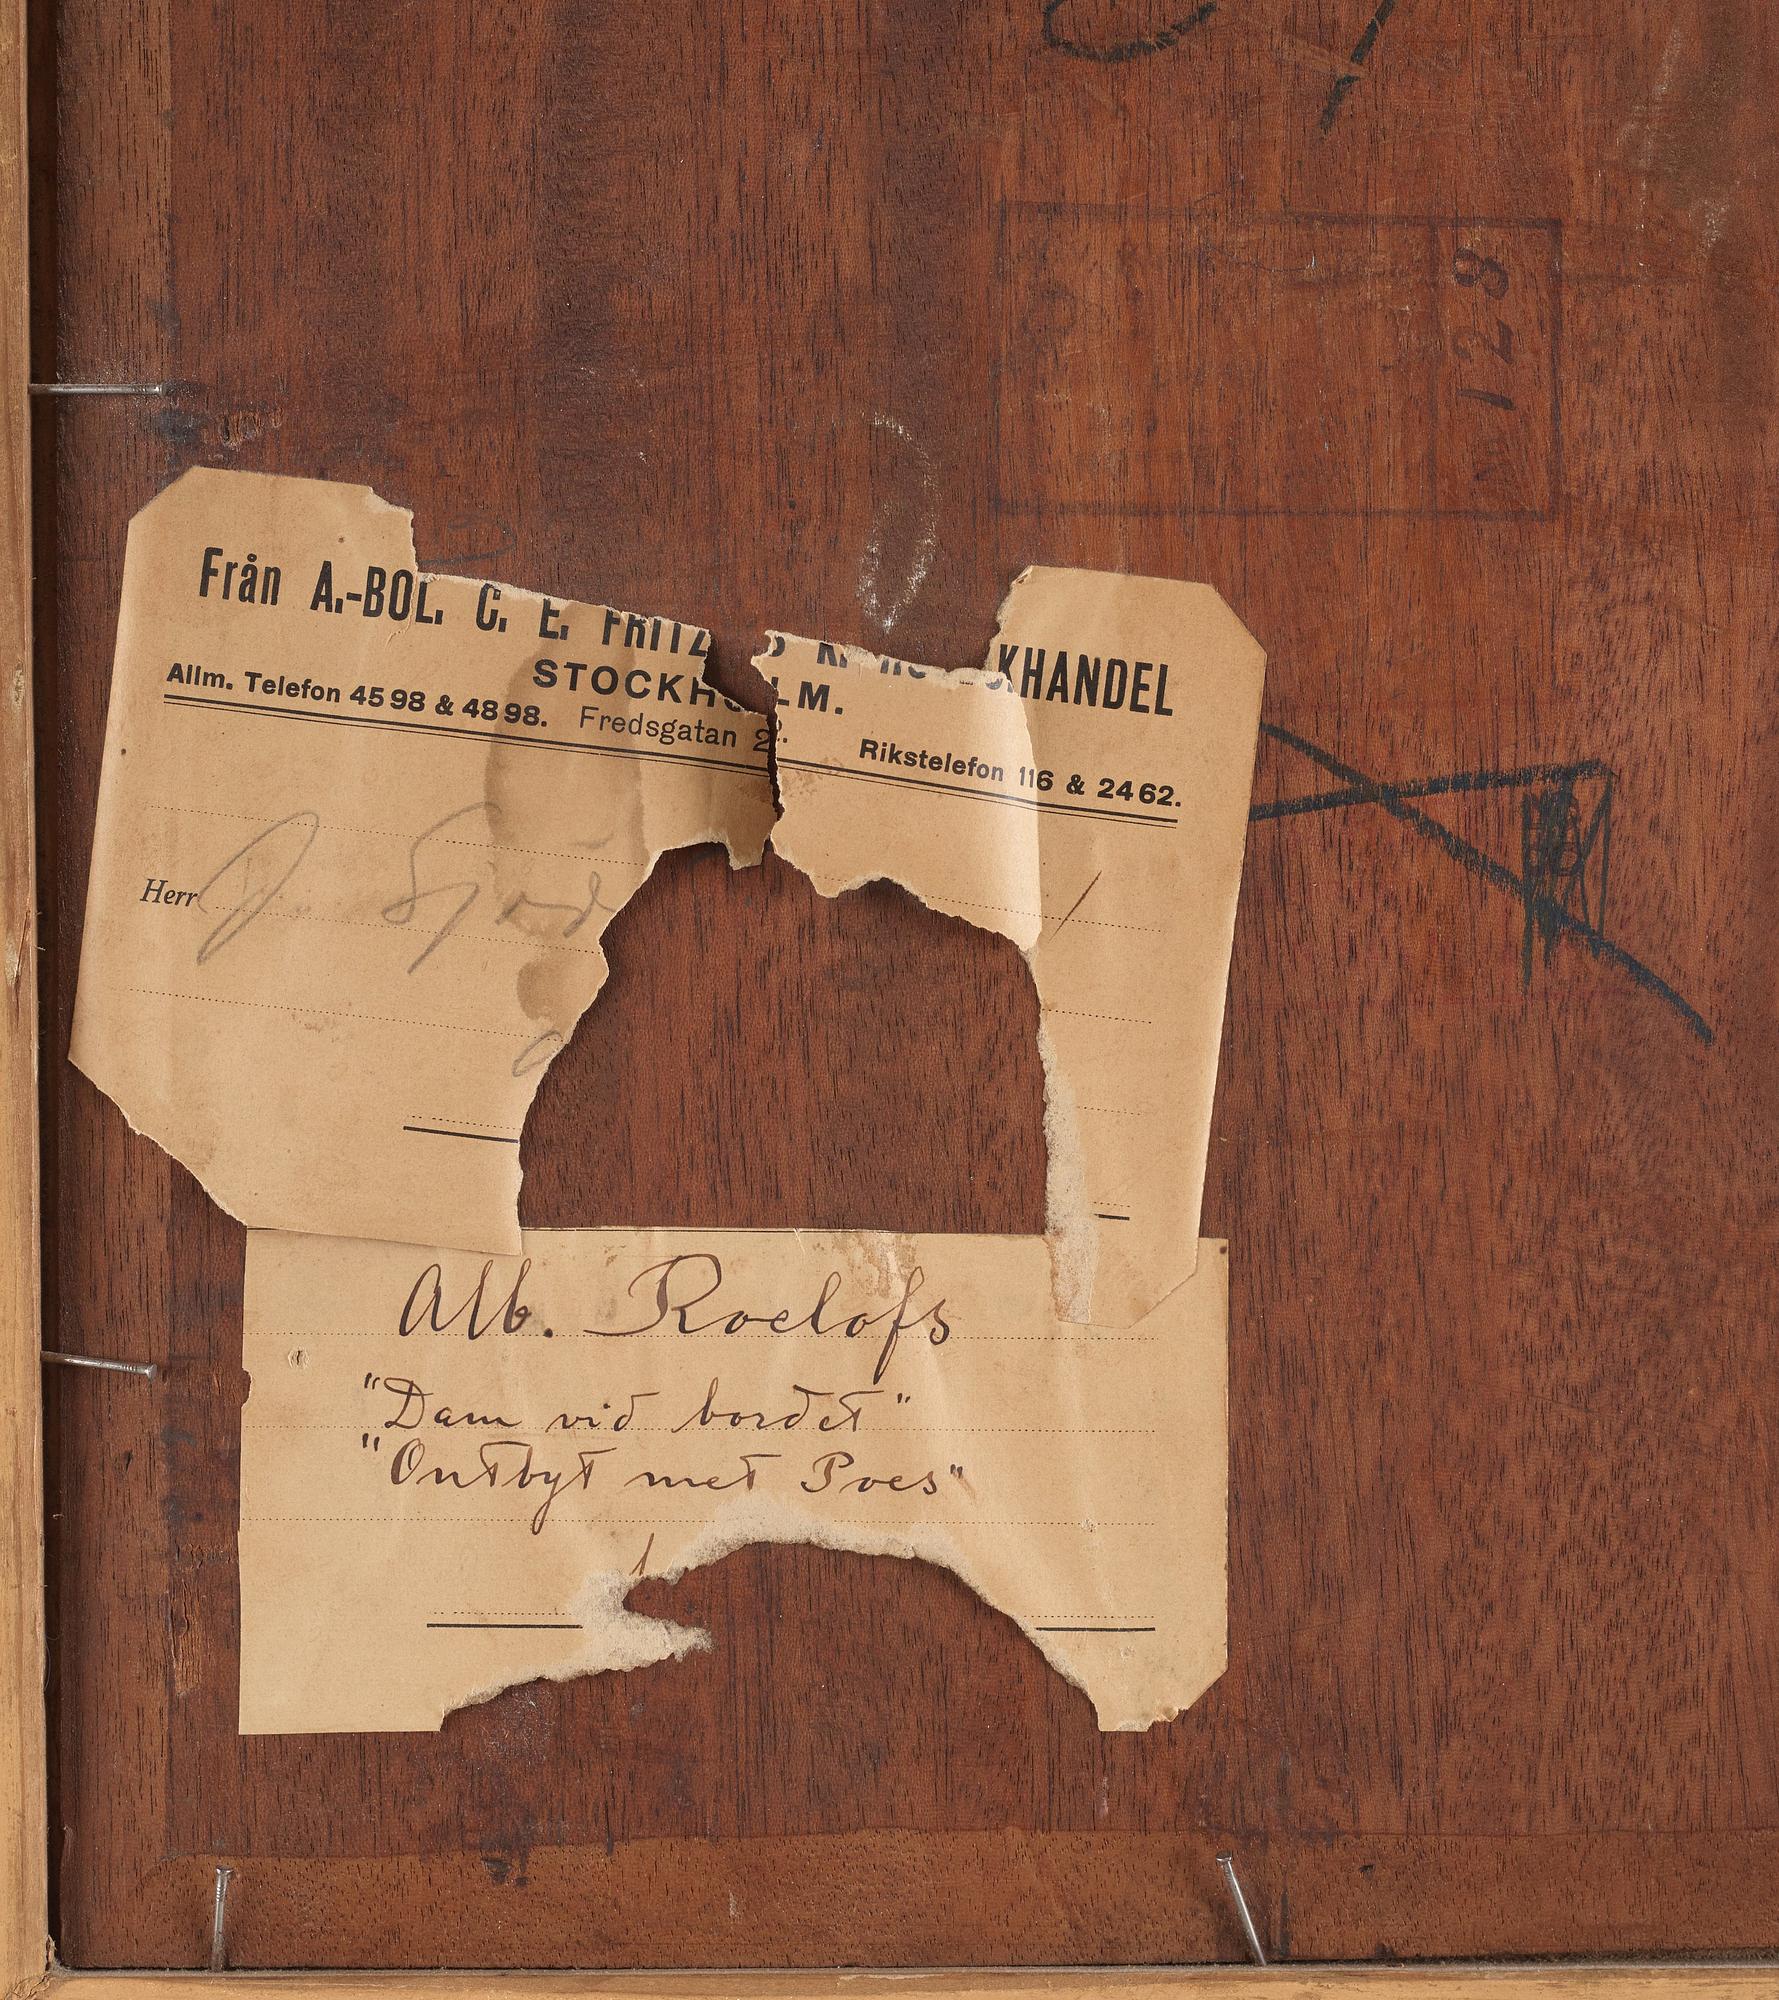 No 128
Från A.-BOL. C. E. FRITZ KHANDEL
STOCKHOLM.
Allm. Telefon 4598 & 4898. Fredsgatan 2. Rikstelefon 116 & 2462.
Herr J.
Alb. Roelofs
"Dam vid bordet"
"Ontbyt met Poes"